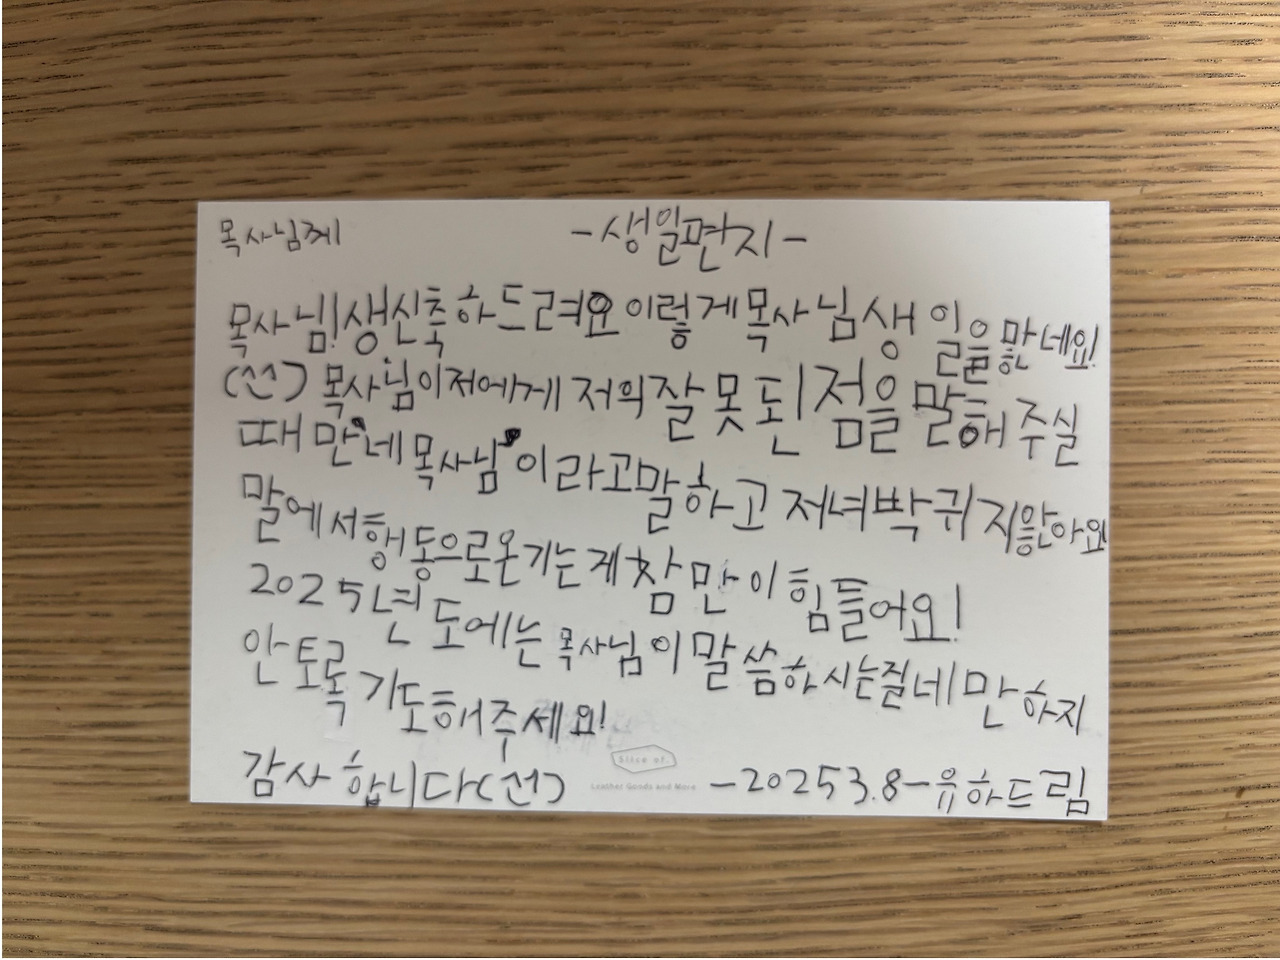 목사님께 -생일편지-
목사님! 생신축하드려요 이렇게 목사님 생일을 맏네요!
(선) 목사님이 저에게 저의 잘못된 점을 말해 주실
때 만 네 목사님 이라고 말하고 저녀 박귀지 안아요
말에서 행동으로 온기는게 참 만이 힘들어요!
2025년도에는 목사님이 말씀하시는 걸 네만 하지
안토록 기도해주세요!
감사합니다(선) -2025 3.8- 유하드림
Slice of.
Leather Goods and More